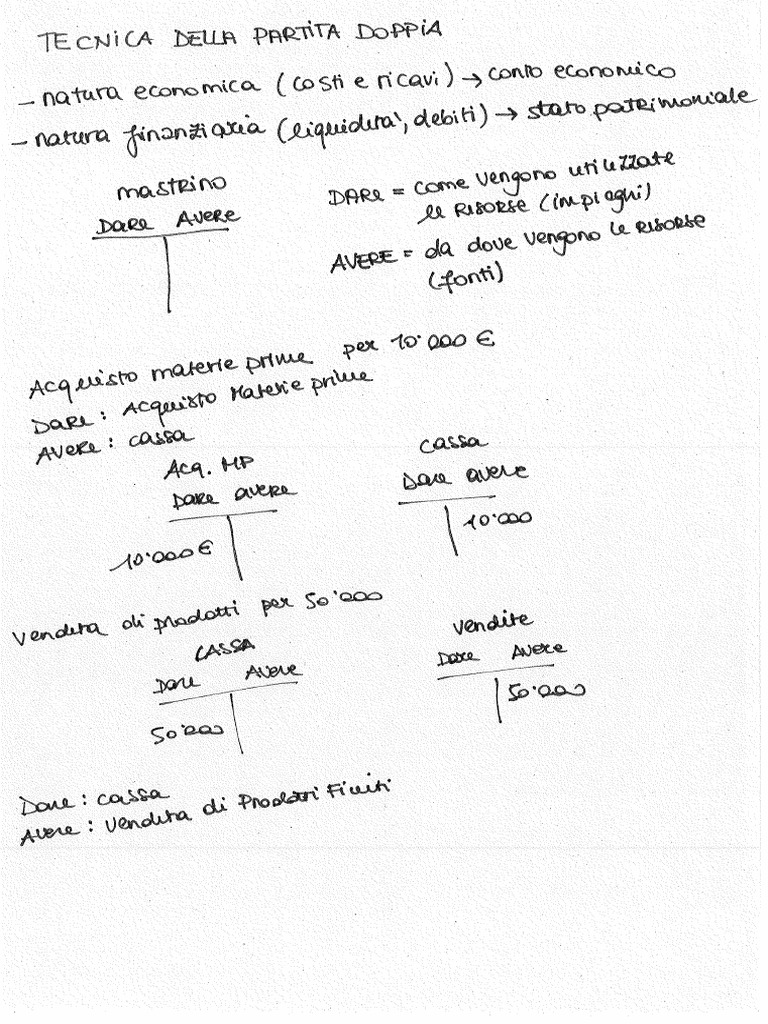 TECNICA DELLA PARTITA DOPPIA
- natura economica (costi e ricavi) → conto economico
- natura finanziaria (liquidità, debiti) → stato patrimoniale
mastrino
Dare Avere
DARE = come vengono utilizzate
le RISORSE (impieghi)
AVERE = da dove vengono le RISORSE
(fonti)
Acquisto materie prime per 10'000 €
Dare : Acquisto Materie prime
Avere : cassa
Acq. MP
Dare avere
10'000 €
cassa
Dare avere
10'000
Vendita di prodotti per 50'000
CASSA
Dare Avere
50'000
Vendite
Dare Avere
50'000
Dare : cassa
Avere : Vendita di Prodotti Finiti